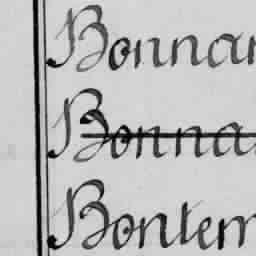 Bonnar
Bonna
Bontem